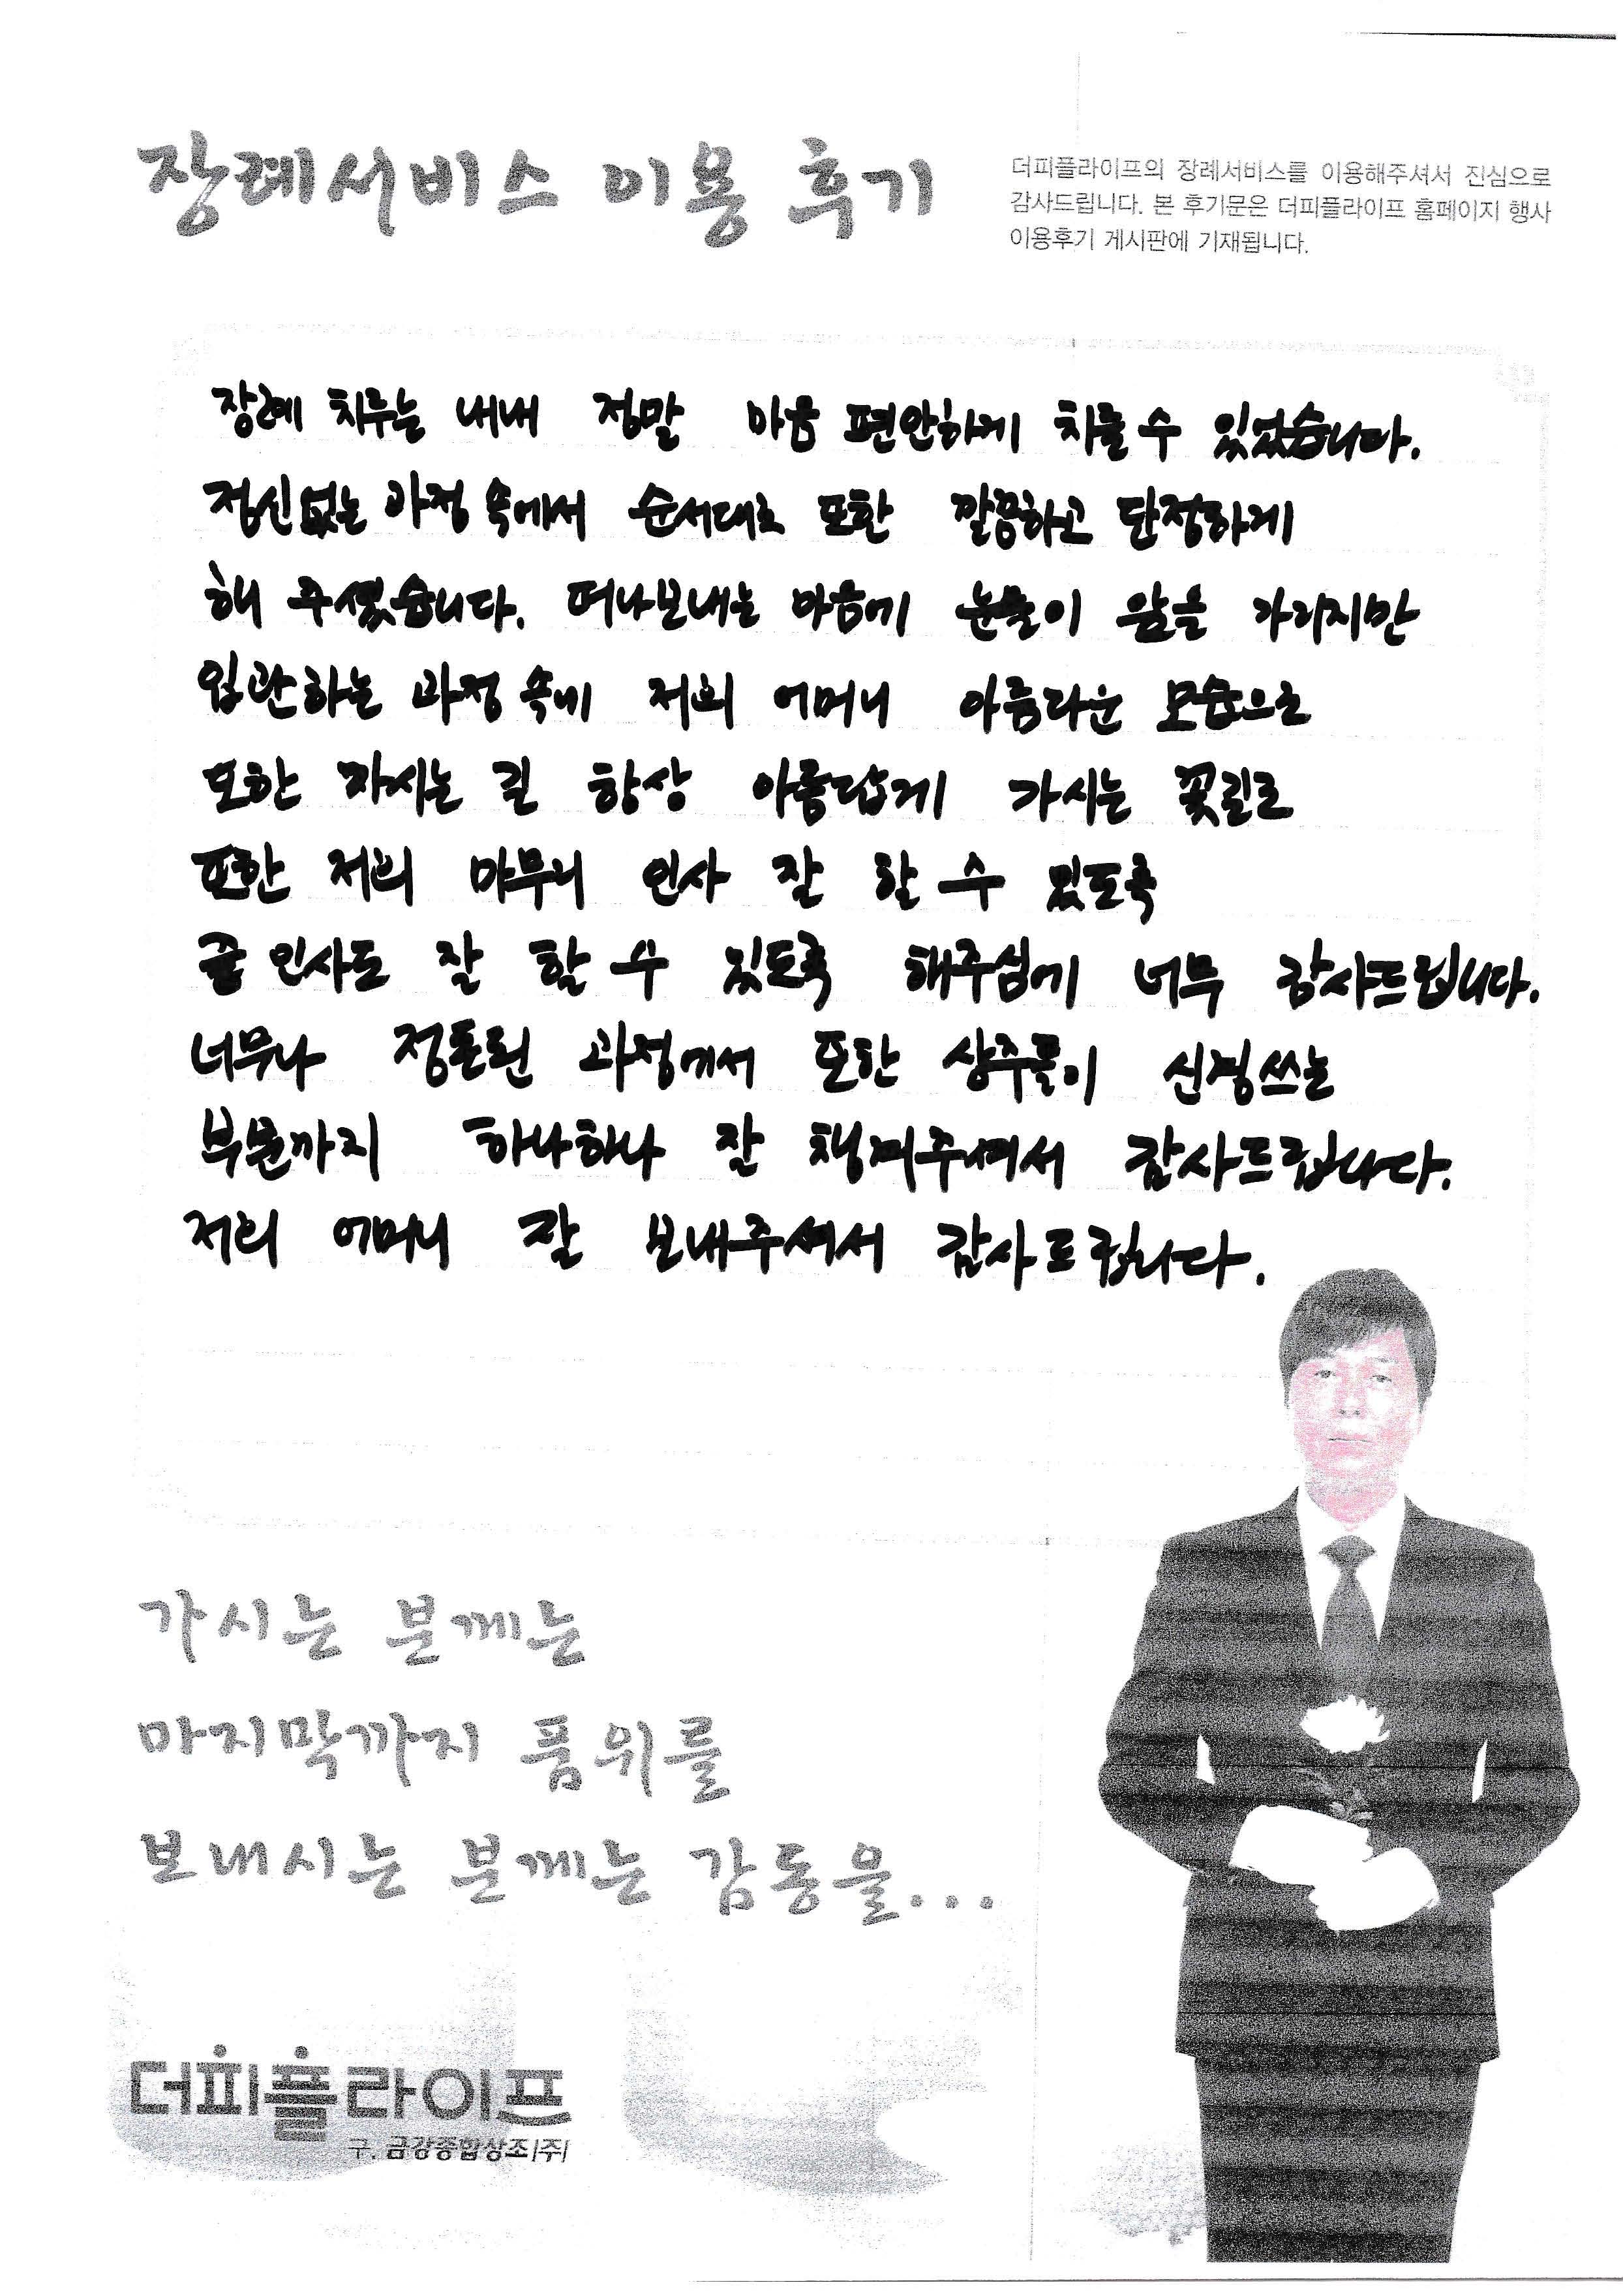 장례서비스 이용 후기
더피플라이프의 장례서비스를 이용해주셔서 진심으로
감사드립니다. 본 후기문은 더피플라이프 홈페이지 행사
이용후기 게시판에 기재됩니다.
장례 치루는 내내 정말 마음 편안하게 치룰 수 있었습니다.
정신없는 과정 속에서 순서대로 또한 깔끔하고 단정하게
해 주셨습니다. 떠나보내는 마음에 눈물이 앞을 가리지만
입관하는 과정 속에 저희 어머니 아름다운 모습으로
또한 가시는 길 항상 아름답게 가시는 꽃길로
또한 저희 마무리 인사 잘 할 수 있도록
끝 인사도 잘 할 수 있도록 해주심에 너무 감사드립니다.
너무나 정돈된 과정에서 또한 상주들이 신경쓰는
부분까지 하나하나 잘 챙겨주셔서 감사드립니다.
저희 어머니 잘 보내주셔서 감사드립니다.
가시는 분께는
마지막까지 품위를
보내시는 분께는 감동을...
더피플라이프
구. 금강종합상조(주)